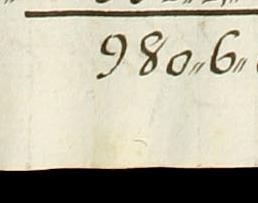 980〃6〃